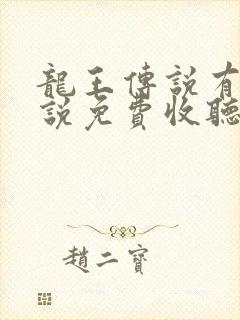 龍王傳說有
說免費收聽
趙二寶